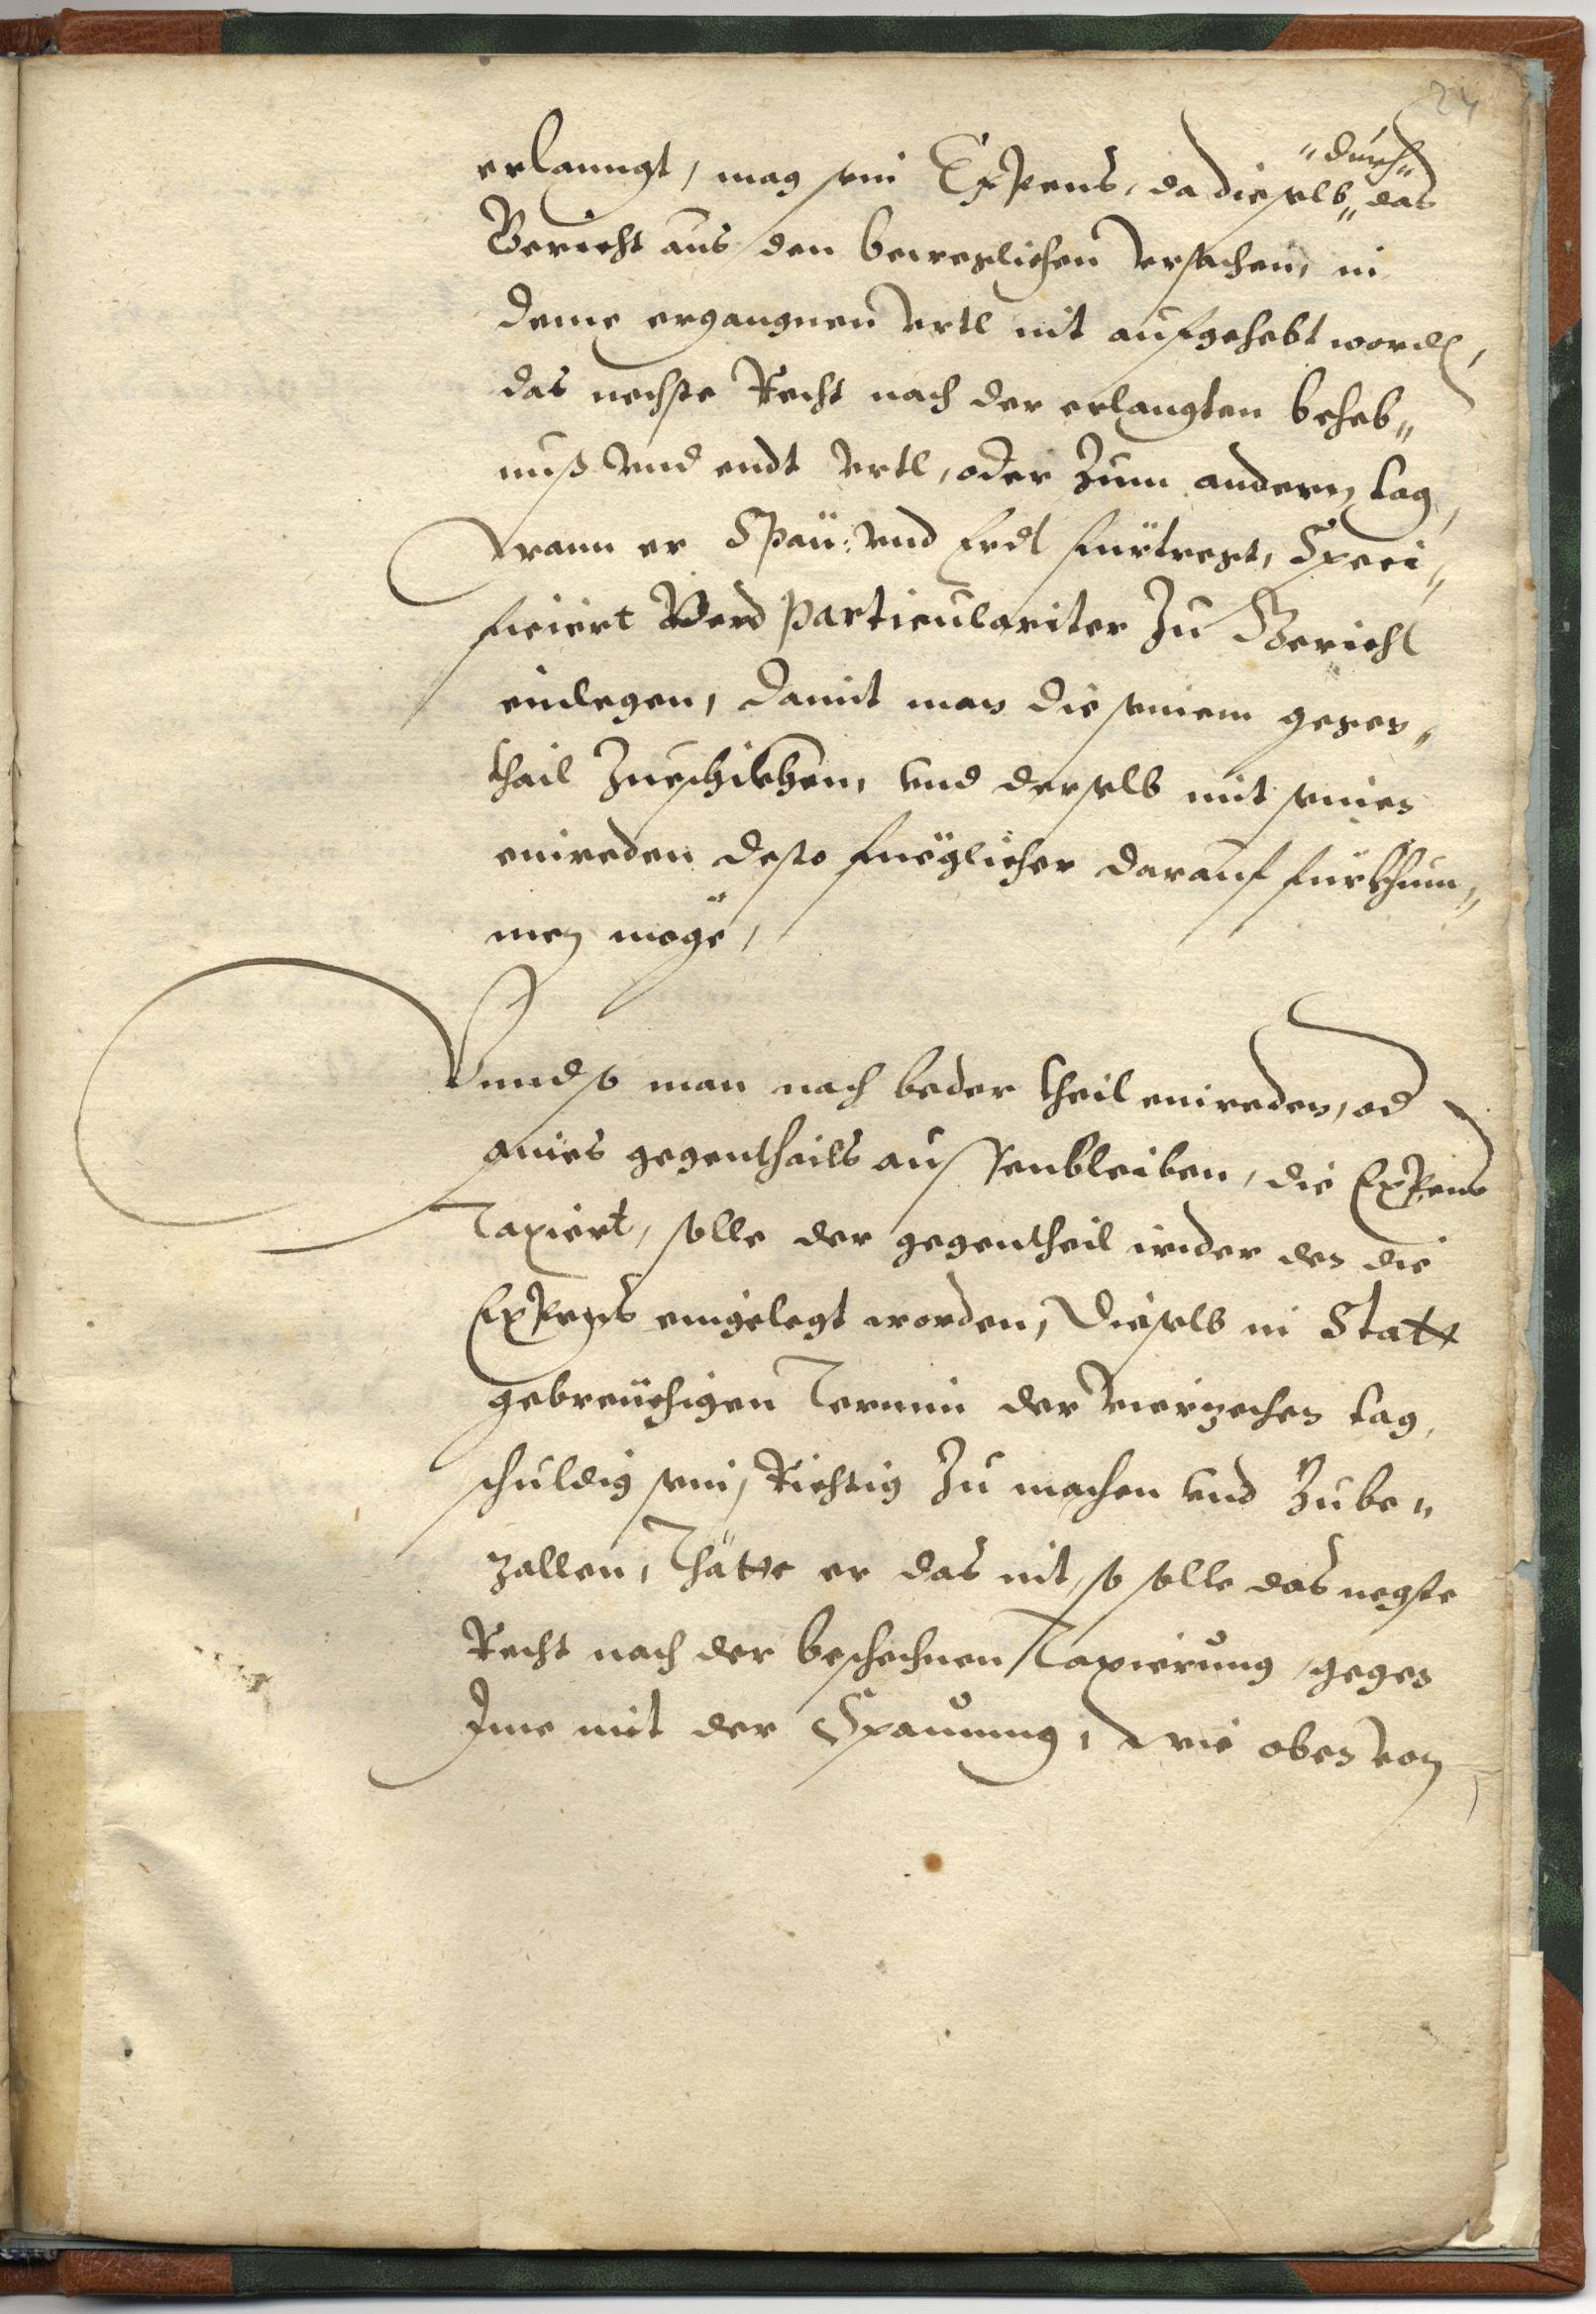 24
"durch"
erlanngt, mag sein Expens, da dieselb" das
Gericht aus den beweglichen vrsachen, in
deme ergangnen vrtl nit aufgehebt worden,
das nechste Recht nach der erlangten beheb"
nuß vnd endt vrtl, oder zum andern tag,
wann er Span: vnd Erdt fürtregt, Speci"
ficiert Vnd particulariter zu Gericht
einlegen, damit man die seinem gegen"
thail zueschikhen, vnd derselb mit seinen
einreden desto füeglicher darauf fürkhum"
men möge,
Vnnd so man nach beder theil einreden, od
aines gegenthails aussenbleiben, die Expens
Taxiert, solle der gegentheil wider den die
Expens eingelegt worden, dieselb in Statt
gebreüchigen Termin der vierzechen tag,
schuldig sein, Richtig zu machen vnd zube"
zallen, Thätte er das nit, so solle das negste
Recht nach der beschechnen Taxierung, gegen
Ime mit der Spannung, wie oben von